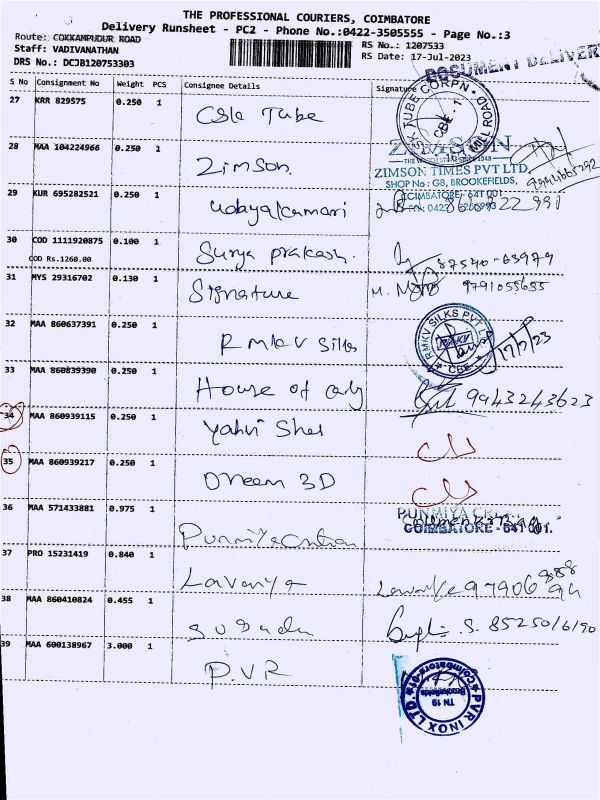 THE PROFESSIONAL COURIERS, COIMBATORE
Delivery Runsheet - PC2 - Phone No.:0422-3505555 - Page No.:3
Route: COKKAMPUDUR ROAD
RS No.: 1207533
Staff: VADIVANATHAN
RS Date: 17-Jul-2023
DRS No.: DCJB120753303
DOCUMENT DELIVER
S No Consignment No Weight PCS Consignee Details Signature
27 KRR 829575 0.250 1 Tube
SK TUBE CORPN
MILL ROAD
CBE - 1
28 MAA 104224966 0.250 1 Zimson.
ZIMSON
THE WATCH STORE SINCE 1948
ZIMSON TIMES PVT LTD,
SHOP No : GB, BROOKEFIELDS,
COIMBATORE - 641 001.
29 KUR 695282521 0.250 1 Udayakumari
30 COD 1111920875 0.100 1 Surya prakash. 87540-63979
COD Rs.1260.00
31 MYS 29316702 0.130 1 Signature 9791055655
32 MAA 860637391 0.250 1 RMKV Silks
RMKV SILKS PVT L
CBE
17/7/23
33 MAA 860839390 0.250 1 House of 9943243623
34 MAA 860939115 0.250 1
35 MAA 860939217 0.250 1 Dreem 3D
36 MAA 571433881 0.975 1
PUNMIYA
COIMBATORE - 641 001.
37 PRO 15231419 0.840 1 Lavanya
38 MAA 860410824 0.455 1
39 MAA 600138967 3.000 1 P.V.R
PVR INOX LTD
Coimbatore-01
TN 19
Brookefields